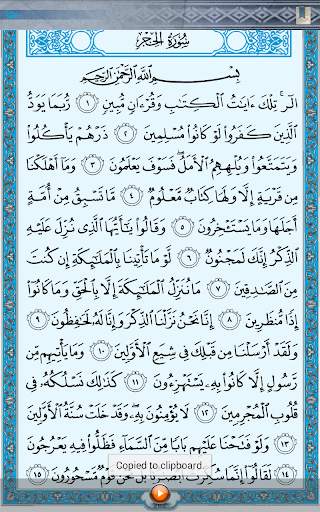 سُورَةُ الحِجْرِ
بِسْمِ اللَّهِ الرَّحْمَٰنِ الرَّحِيمِ
الٓر ۚ تِلْكَ ءَايَٰتُ ٱلْكِتَٰبِ وَقُرْءَانٍ مُّبِينٍ ١ رُّبَمَا يَوَدُّ
ٱلَّذِينَ كَفَرُوا۟ لَوْ كَانُوا۟ مُسْلِمِينَ ٢ ذَرْهُمْ يَأْكُلُوا۟
وَيَتَمَتَّعُوا۟ وَيُلْهِهِمُ ٱلْأَمَلُ ۖ فَسَوْفَ يَعْلَمُونَ ٣ وَمَآ أَهْلَكْنَا
مِن قَرْيَةٍ إِلَّا وَلَهَا كِتَابٌ مَّعْلُومٌ ٤ مَّا تَسْبِقُ مِنْ أُمَّةٍ
أَجَلَهَا وَمَا يَسْتَـْٔخِرُونَ ٥ وَقَالُوا۟ يَٰٓأَيُّهَا ٱلَّذِى نُزِّلَ عَلَيْهِ
ٱلذِّكْرُ إِنَّكَ لَمَجْنُونٌ ٦ لَّوْ مَا تَأْتِينَا بِٱلْمَلَٰٓئِكَةِ إِن كُنتَ
مِنَ ٱلصَّٰدِقِينَ ٧ مَا نُنَزِّلُ ٱلْمَلَٰٓئِكَةَ إِلَّا بِٱلْحَقِّ وَمَا كَانُوٓا۟
إِذًا مُّنظَرِينَ ٨ إِنَّا نَحْنُ نَزَّلْنَا ٱلذِّكْرَ وَإِنَّا لَهُۥ لَحَٰفِظُونَ ٩
وَلَقَدْ أَرْسَلْنَا مِن قَبْلِكَ فِى شِيَعِ ٱلْأَوَّلِينَ ١٠ وَمَا يَأْتِيهِم مِّن
رَّسُولٍ إِلَّا كَانُوا۟ بِهِۦ يَسْتَهْزِءُونَ ١١ كَذَٰلِكَ نَسْلُكُهُۥ فِى
قُلُوبِ ٱلْمُجْرِمِينَ ١٢ لَا يُؤْمِنُونَ بِهِۦ ۖ وَقَدْ خَلَتْ سُنَّةُ ٱلْأَوَّلِينَ
١٣ وَلَوْ فَتَحْنَا عَلَيْهِم بَابًا مِّنَ ٱلسَّمَآءِ فَظَلُّوا۟ فِيهِ يَعْرُجُونَ
١٤ لَقَالُوٓا۟ إِنَّمَا سُكِّرَتْ أَبْصَٰرُنَا بَلْ نَحْنُ قَوْمٌ مَّسْحُورُونَ ١٥
Copied to clipboard.